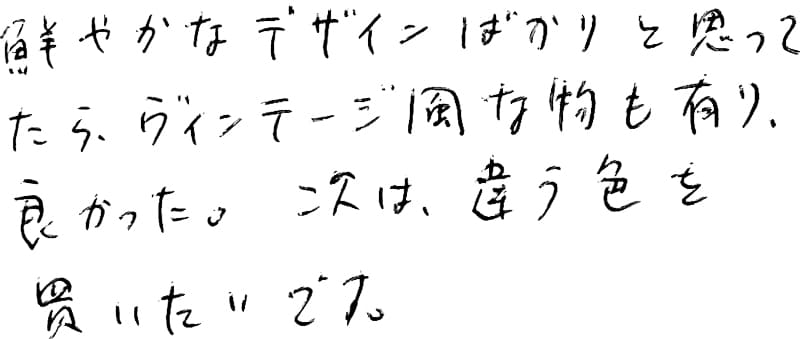 鮮やかなデザインばかりと思って
たら、ヴィンテージ風な物も有り、
良かった。次は、違う色を
買いたいです。